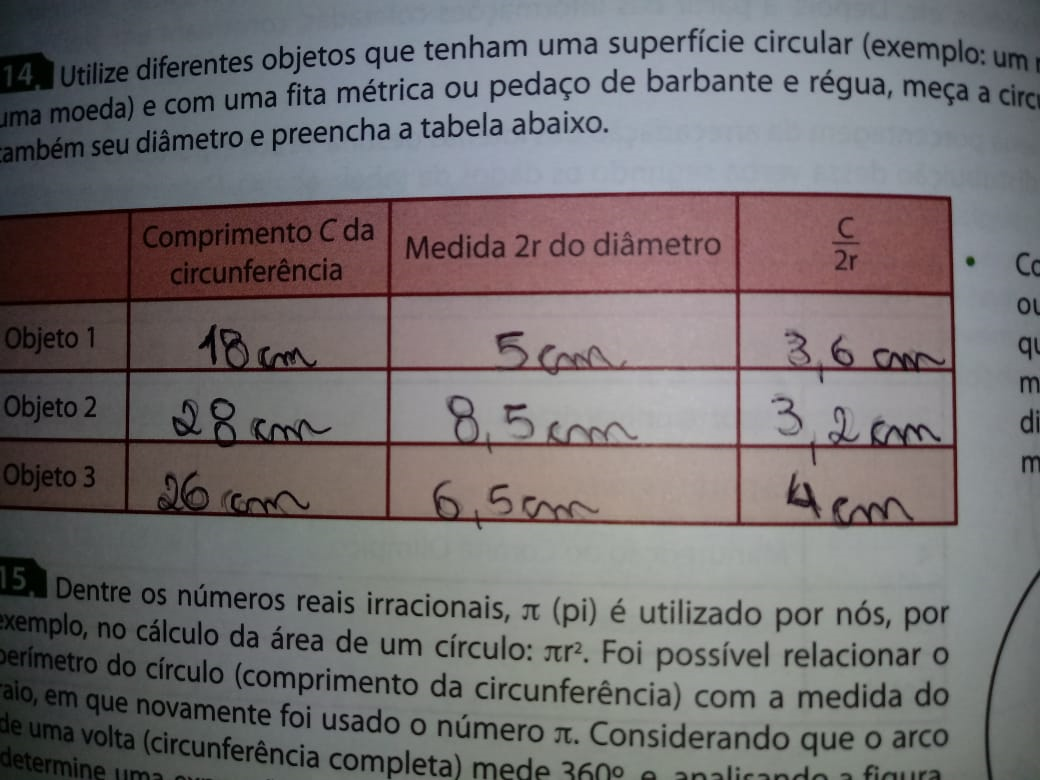 14. Utilize diferentes objetos que tenham uma superfície circular (exemplo: um
uma moeda) e com uma fita métrica ou pedaço de barbante e régua, meça a circu
também seu diâmetro e preencha a tabela abaixo.
Comprimento C da circunferência Medida 2r do diâmetro C/2r
Objeto 1 18 cm 5 cm 3,6 cm
Objeto 2 28 cm 8,5 cm 3,2 cm
Objeto 3 26 cm 6,5 cm 4 cm
• Co
ou
qu
m
di
m
15. Dentre os números reais irracionais, π (pi) é utilizado por nós, por
exemplo, no cálculo da área de um círculo: πr². Foi possível relacionar o
perímetro do círculo (comprimento da circunferência) com a medida do
raio, em que novamente foi usado o número π. Considerando que o arco
de uma volta (circunferência completa) mede 360º e, analisando a figura,
determine uma